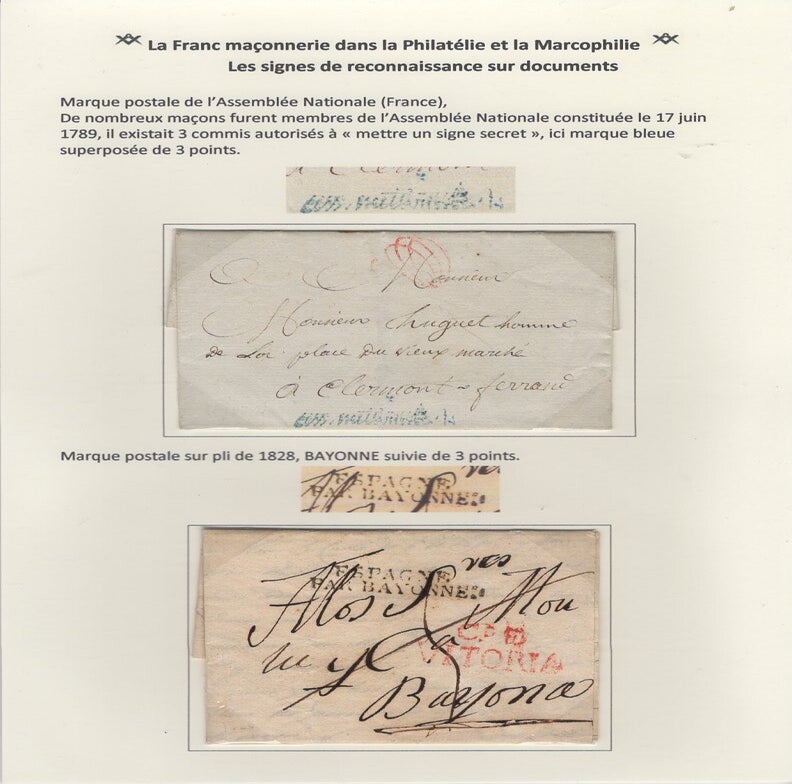 La Franc maçonnerie dans la Philatélie et la Marcophilie
Les signes de reconnaissance sur documents
Marque postale de l’Assemblée Nationale (France),
De nombreux maçons furent membres de l’Assemblée Nationale constituée le 17 juin
1789, il existait 3 commis autorisés à « mettre un signe secret », ici marque bleue
superposée de 3 points.
Monsieur
Monsieur huguet homme
de Loi place du vieux marché
à Clermont-ferrand
Marque postale sur pli de 1828, BAYONNE suivie de 3 points.
ESPAGNE
PAR BAYONNE
ESPAGNE
PAR BAYONNE
Alos S.res
VITORIA
Bayona